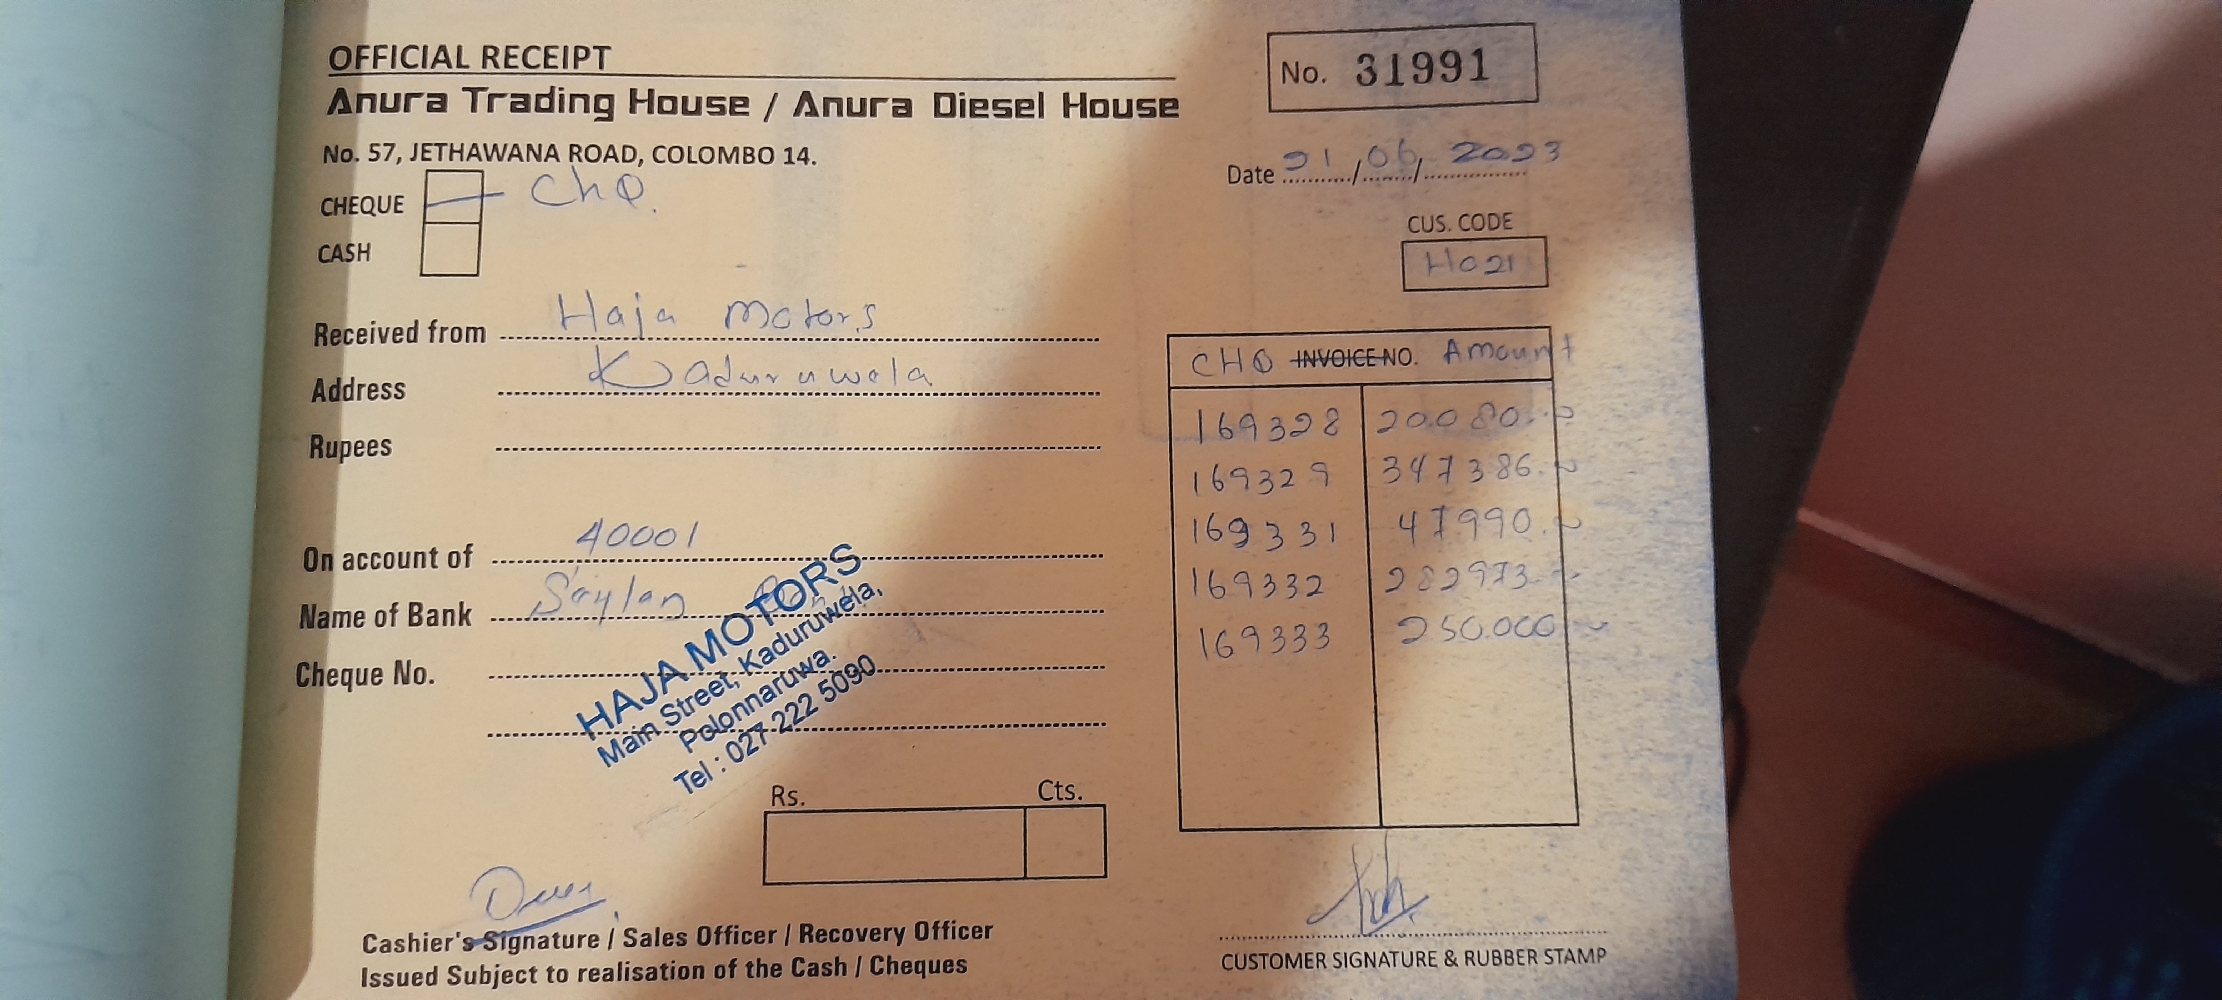 OFFICIAL RECEIPT
No. 31991
Anura Trading House / Anura Diesel House
No. 57, JETHAWANA ROAD, COLOMBO 14.
Date 21/06/2023
CHEQUE CHQ.
CASH
CUS. CODE
H021
Received from Haja Motors
Address Kaduruwela
Rupees
CHQ INVOICE NO. Amount
169328 20.080.
169329 347386.
169331 47990.
169332 282973.
169333 250.000
On account of 40001
Name of Bank Saylan
Cheque No.
HAJA MOTORS
Main Street, Kaduruwela,
Polonnaruwa.
Tel : 027 222 5090
Rs. Cts.
Cashier's Signature / Sales Officer / Recovery Officer
Issued Subject to realisation of the Cash / Cheques
CUSTOMER SIGNATURE & RUBBER STAMP